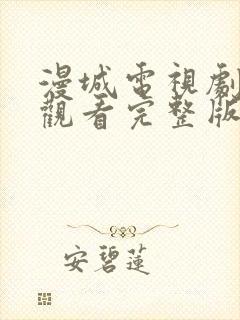 漫城電視劇
觀看完整版
安碧蓮